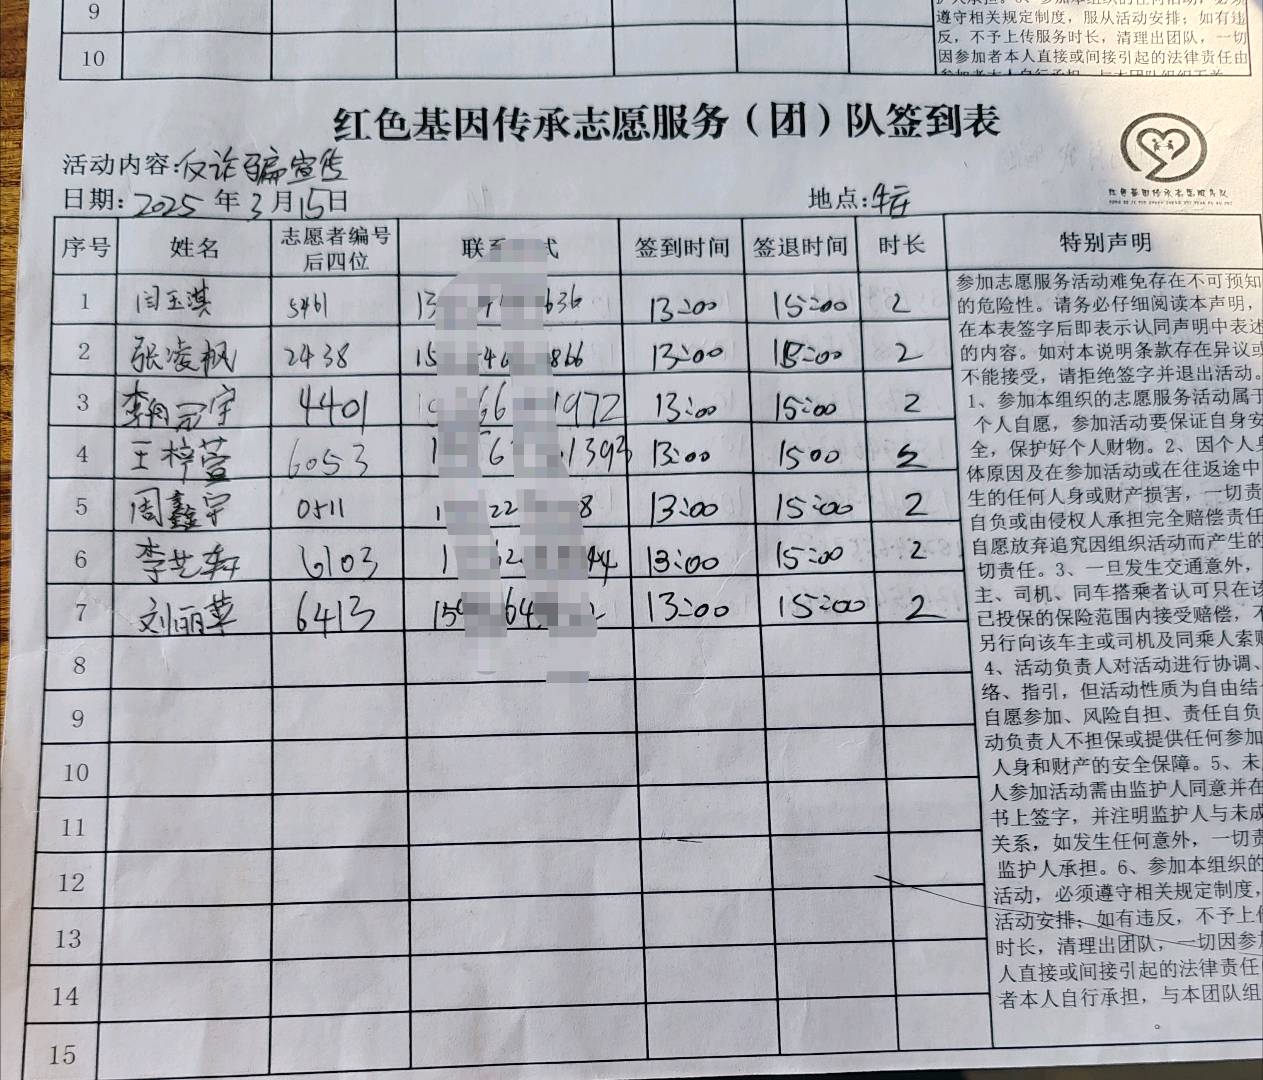 9
10
护人承担。6、参加本组织的任何活动，必须
遵守相关规定制度，服从活动安排；如有违
反，不予上传服务时长，清理出团队，一切
因参加者本人直接或间接引起的法律责任由
红色基因传承志愿服务（团）队签到表
活动内容：反诈骗宣传
日期：2025年3月15日
地点：
红色基因传承志愿服务队
序号 姓名 志愿者编号后四位 签到时间 签退时间 时长 特别声明
1 闫玉淇 5461 13 636 13:00 15:00 2
2 张凌枫 2438 15 46 866 13:00 15:00 2
3 李 宇 4401 66 1972 13:00 15:00 2
4 王梓萱 6053 1 6 1393 13:00 1500 2
5 周鑫宇 0511 1 22 8 13:00 15:00 2
6 李艺轩 6103 1 62 44 13:00 15:00 2
7 刘丽苹 6413 159 64 13:00 15:00 2
8
9
10
11
12
13
14
15
参加志愿服务活动难免存在不可预知
的危险性。请务必仔细阅读本声明，
在本表签字后即表示认同声明中表述
的内容。如对本说明条款存在异议或
不能接受，请拒绝签字并退出活动。
1、参加本组织的志愿服务活动属于
个人自愿，参加活动要保证自身安
全，保护好个人财物。2、因个人身
体原因及在参加活动或在往返途中
生的任何人身或财产损害，一切责
自负或由侵权人承担完全赔偿责任
自愿放弃追究因组织活动而产生的
切责任。3、一旦发生交通意外，
主、司机、同车搭乘者认可只在该
已投保的保险范围内接受赔偿，不
另行向该车主或司机及同乘人索赔
4、活动负责人对活动进行协调、
络、指引，但活动性质为自由结
自愿参加、风险自担、责任自负
动负责人不担保或提供任何参加
人身和财产的安全保障。5、未
人参加活动需由监护人同意并在
书上签字，并注明监护人与未成
关系，如发生任何意外，一切责
监护人承担。6、参加本组织的
活动，必须遵守相关规定制度，
活动安排；如有违反，不予上传
时长，清理出团队，一切因参加
人直接或间接引起的法律责任
者本人自行承担，与本团队组
。